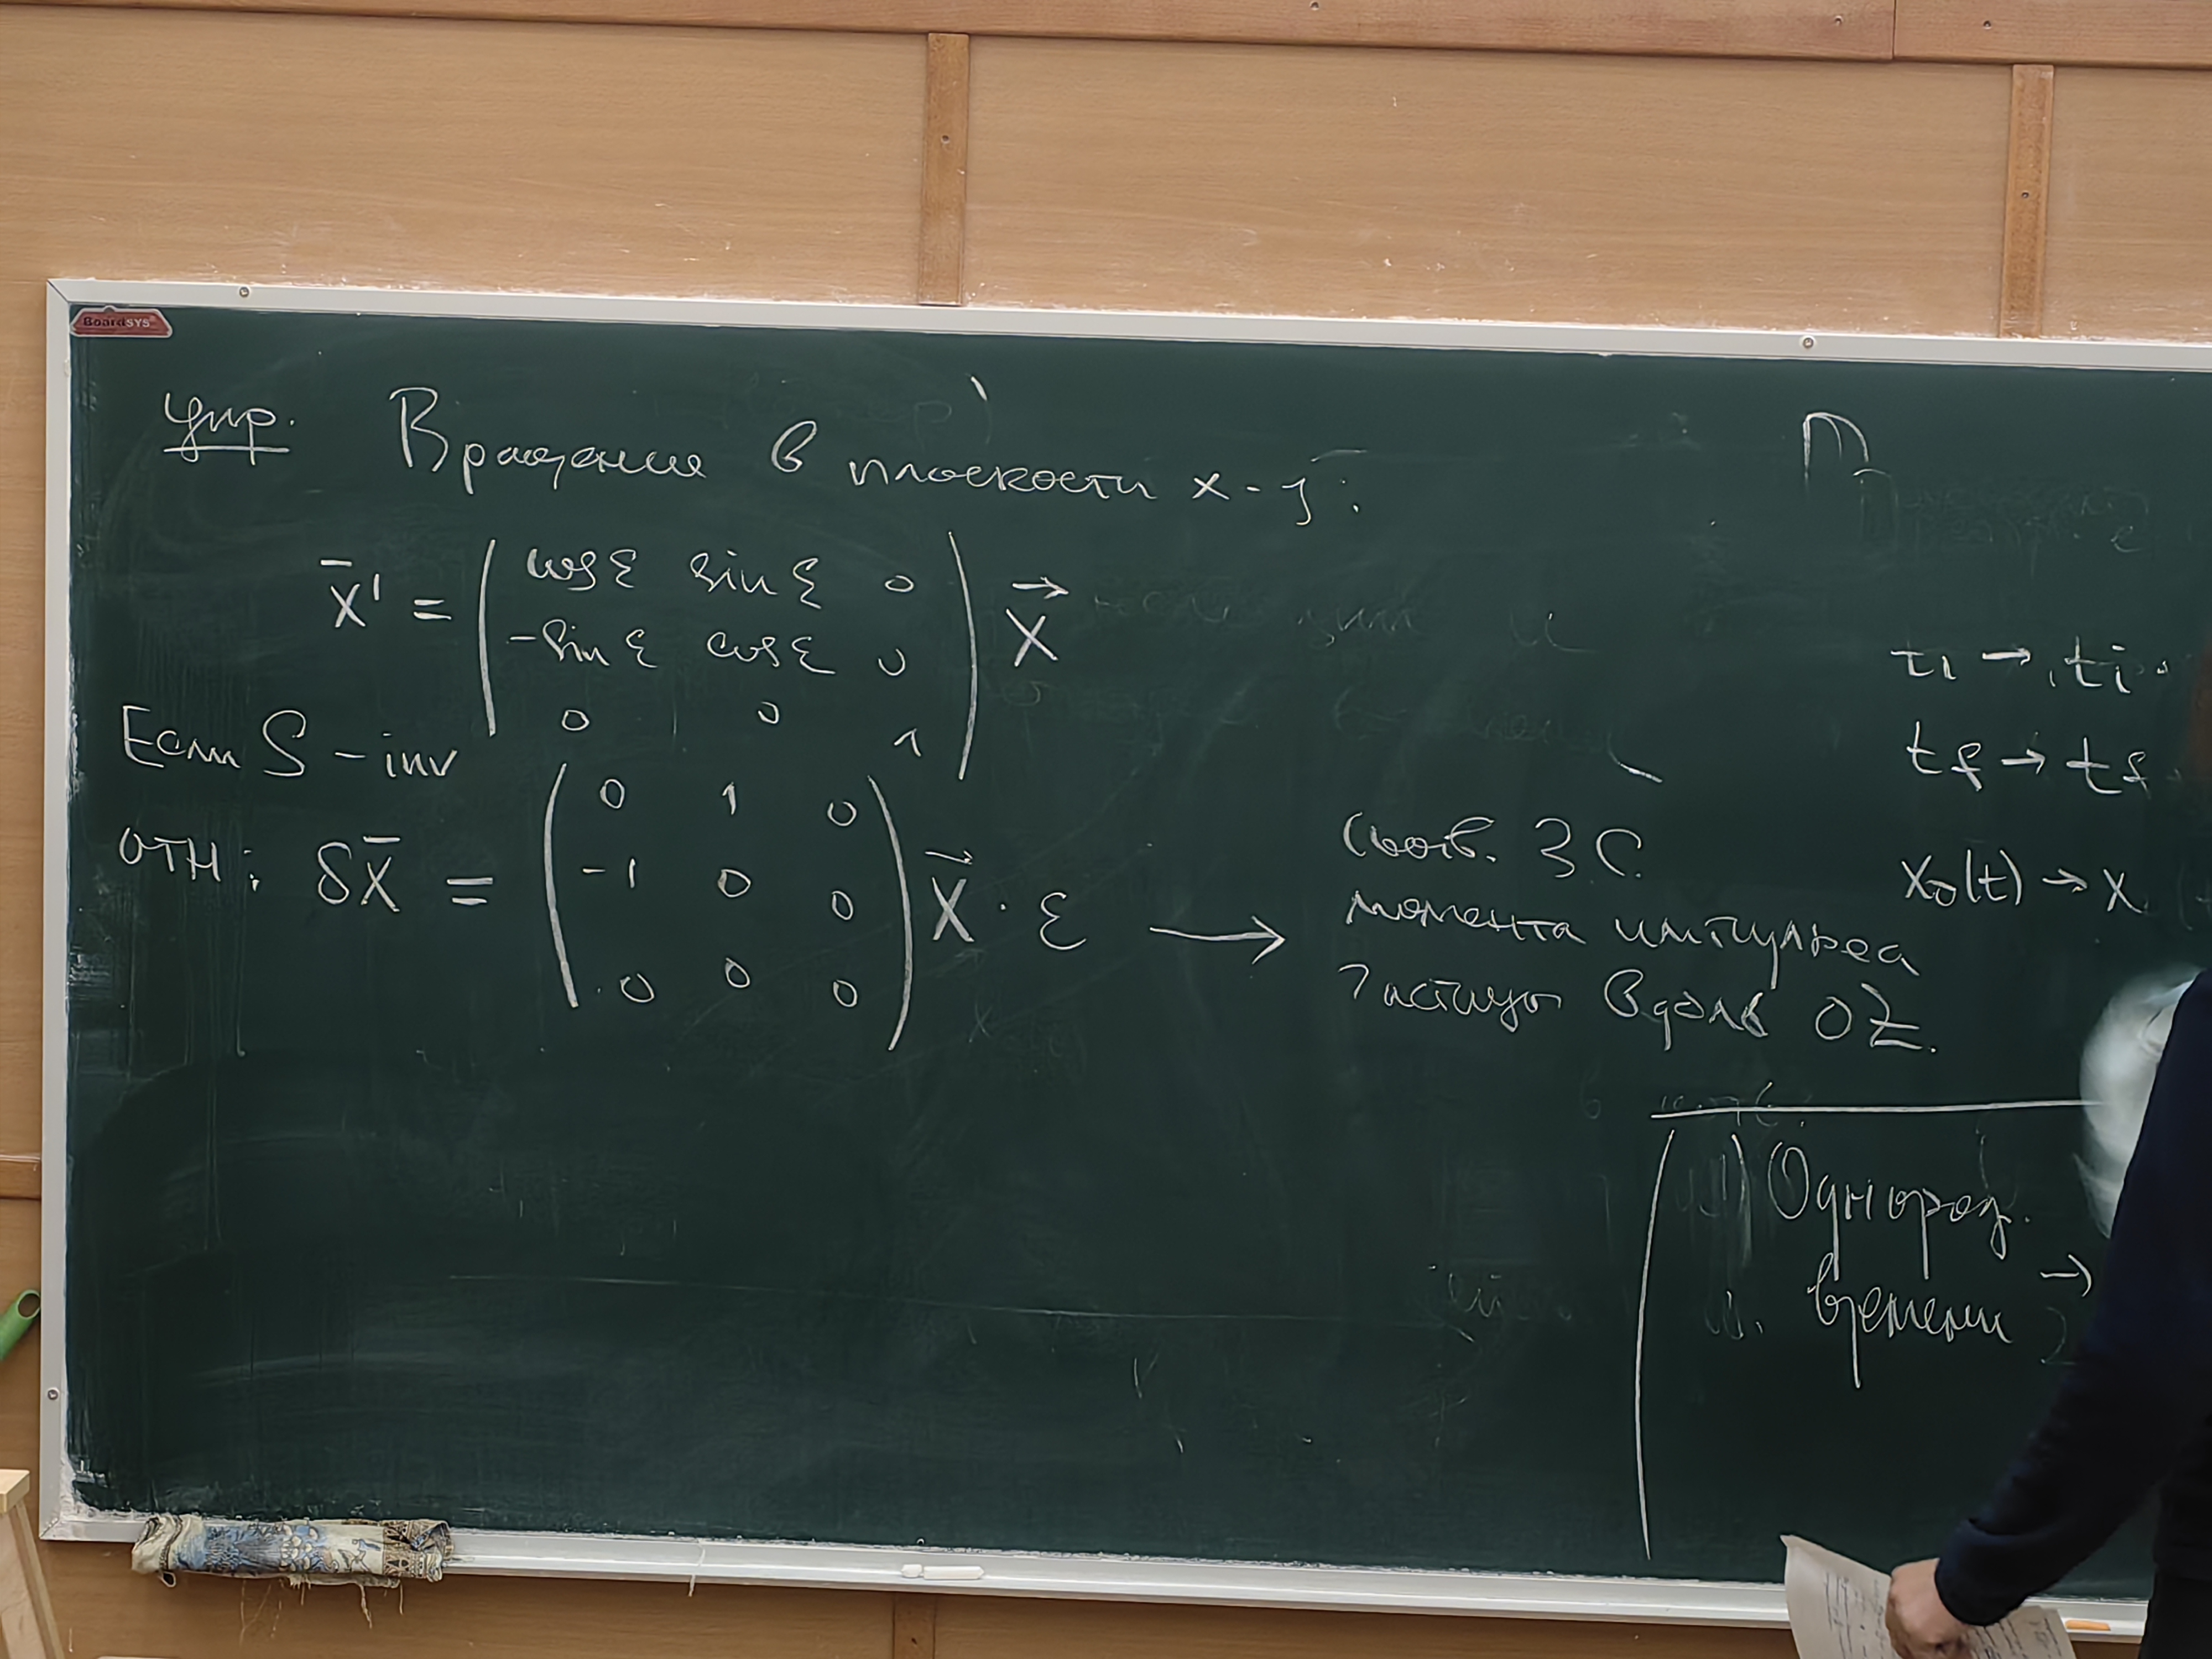 BoardSYS
упр. Вращение в плоскости x-y:
x̄' = ( cos ε sin ε 0
-sin ε cos ε 0
0 0 1 ) x⃗
Если S - inv
отн: δx̄ = ( 0 1 0
-1 0 0
0 0 0 ) x⃗ · ε →
соотв. З.С.
момента импульса
частицы вдоль OZ.
П
ti → ti
tf → tf
x0(t) → x
1) Однород.
времени →